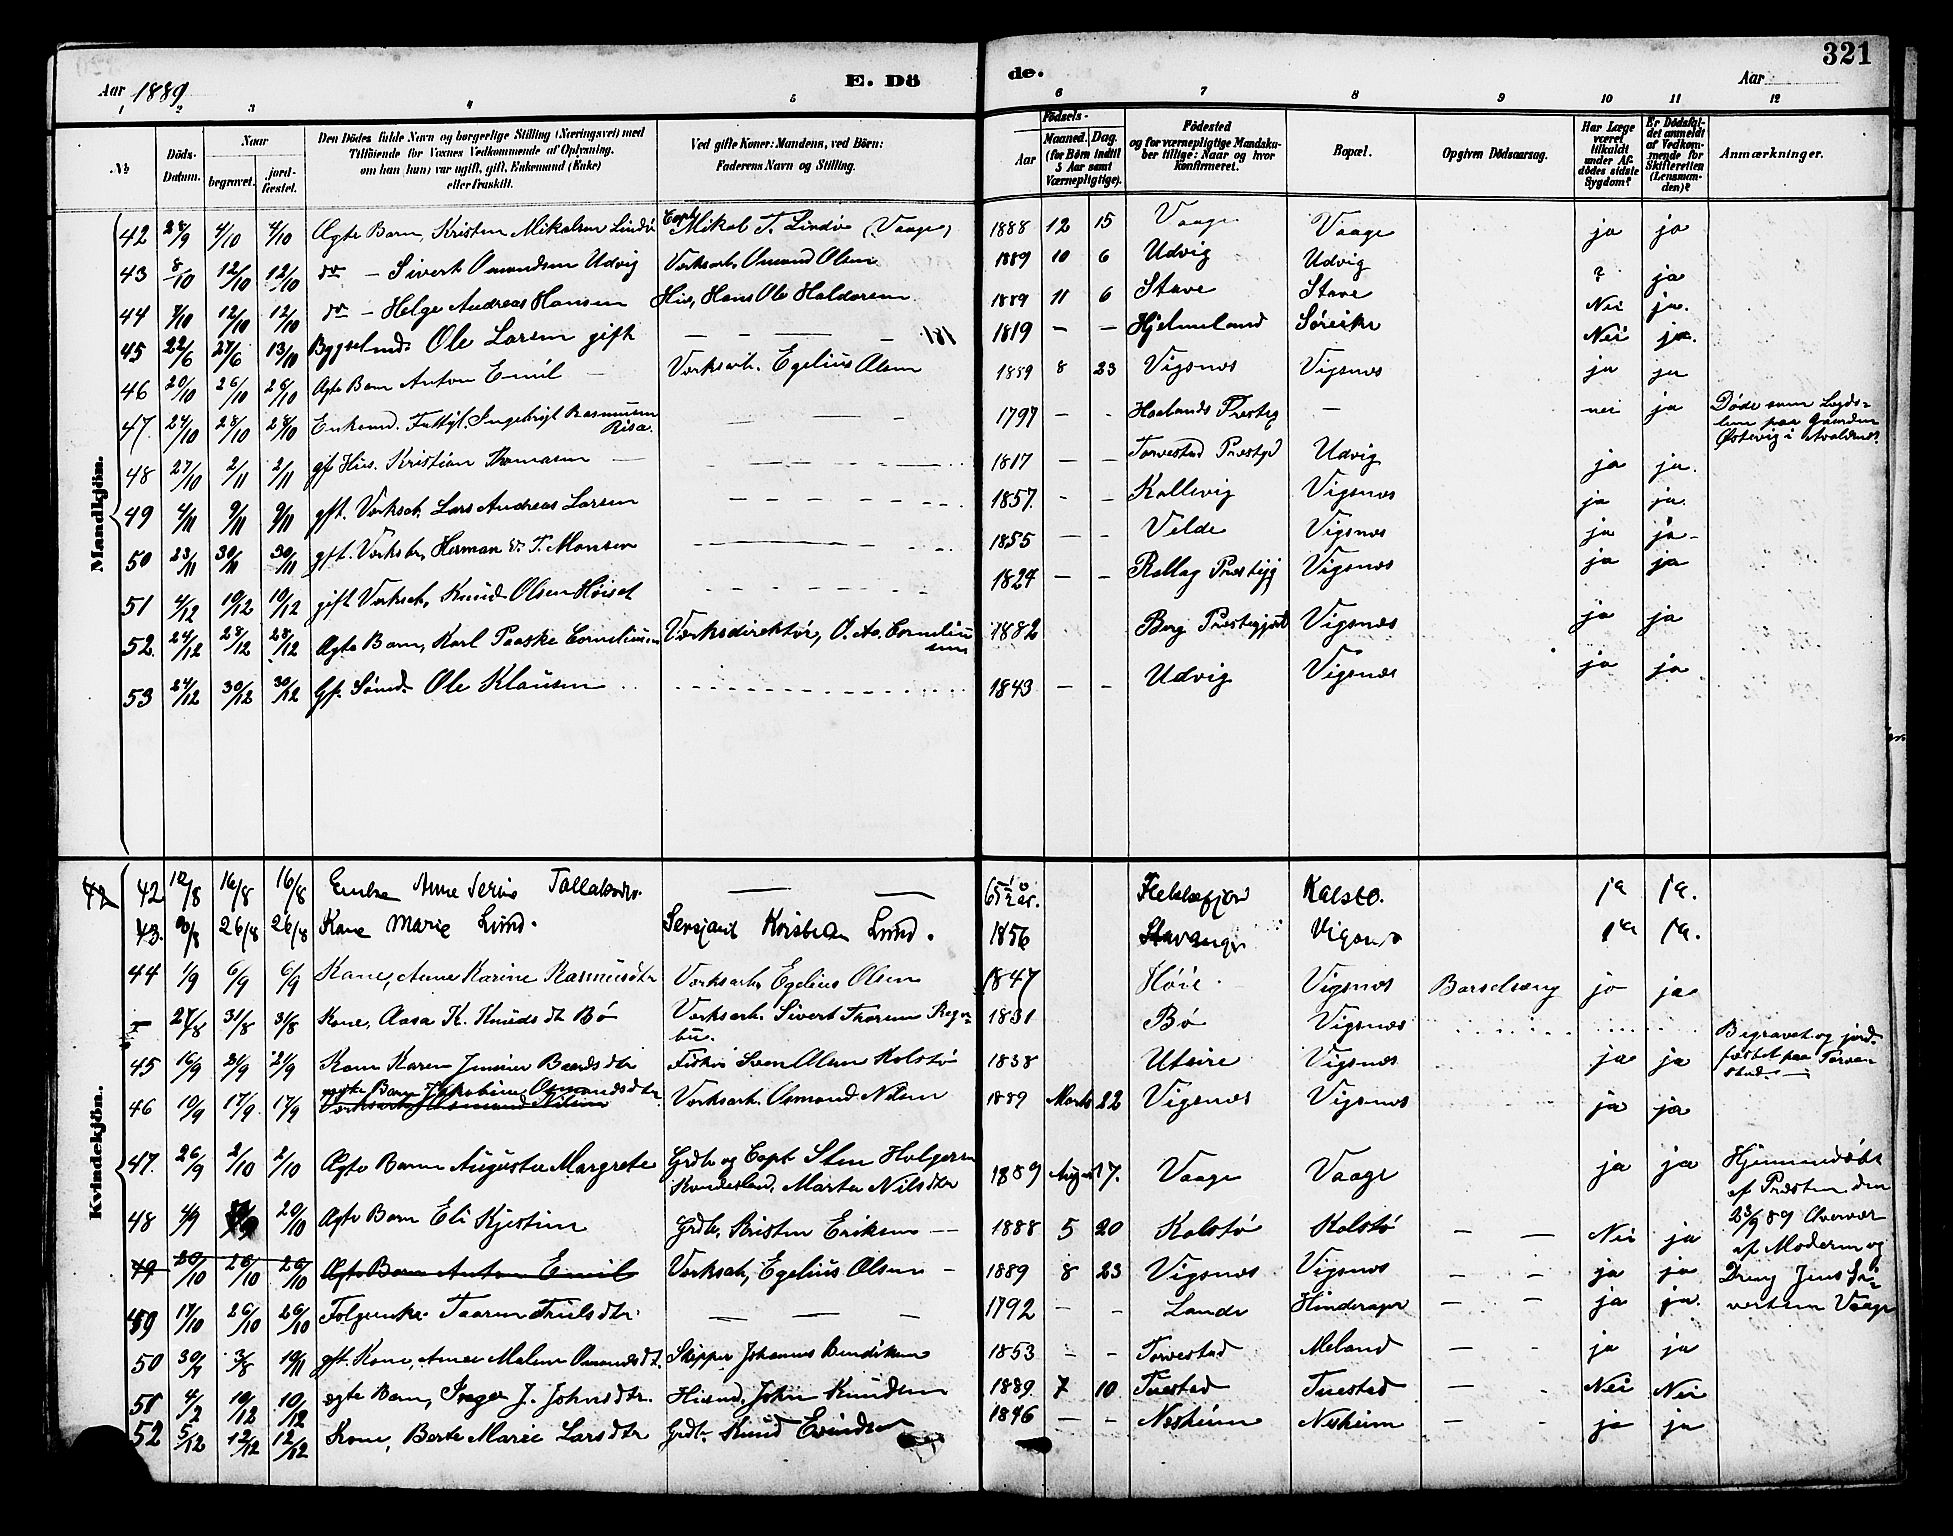 321
Aar 1889
E. Dö
de.
Aar
1 2 3 4 5 6 7 8 9 10 11 12
№
Döds-Datum.
Naar
begravet.
jord-fæstet.
Den Dödes fulde Navn og borgerlige Stilling (Næringsvei) med
Tilföiende for Voxnes Vedkommende af Oplysning,
om han (hun) var ugift, gift, Enkemand (Enke)
eller fraskilt.
Ved gifte Koner: Mandens, ved Börn:
Faderens Navn og Stilling.
Födsels-
Aar
Maaned. Dag.
(for Börn indtil
5 Aar samt
Værnepligtige).
Födested
og for værnepligtige Mandska-
ber tillige: Naar og hvor
konfirmeret.
Bopæl.
Opgiven Dödsaarsag.
Har Læge
været
tilkaldt
under Af-
dödes sidste
Sygdom?
Er Dödsfal-
det anmeldt
af Vedkom-
mende for
Skifteretten
(Lensman-
den)?
Anmærkninger.
Mandkjön.
42 28/9 4/10 4/10 Ægte Barn, Kristen Mikalsen Lindø Capt. Mikal T. Lindø (Vaage) 1888 12 15 Vaage Vaage ja ja
43 8/10 12/10 12/10 do – Sivert Osmundsen Udvig Værksarb. Osmund Olsen 1889 10 6 Udvig Udvig ? ja
44 7/10 12/10 12/10 do – Helge Andreas Hansen Hus, Hans Ole Haldorsen 1889 11 6 Stave Stave Nei ja.
45 22/6 27/6 13/10 Bygselmd. Ole Larsen gift – – – – 1819 – – Hjelmeland Søreike Nei ja.
46 20/10 26/10 28/10 Ægte Barn Anton Emil – Værksarb. Egelius Olsen 1889 8 23 Vigsnæs Vigsnæs ja ja
47. 24/10 28/10 28/10 Enkemd. Fattigl. Ingebrigt Rasmussen Risa. – – 1797 – - Haalands Præsteg – nei ja Døde som Lægds-
lem paa Gaarden
Østevig i Avaldsnæs
48 27/10 2/11 2/11 gft Hus. Kristian Thomasen – 1817 – – Torvestad Præstgd Udvig ja ja.
49 4/11 9/11 9/11 gft. Værksarb. Lars Andreas Larsen 1857. - – Kallevig Vigsnæs ja ja.
50 23/11 30/11 30/11 gft. Værksbr. Herman T. Monsen 1855 – – Velde Vigsnæs ja ja-
51 4/12 10/12 10/12 gift Værksarb, Knud Olsen Høiset 1824 – – Rollag Præstgj Vigsnæs ja ja
52. 24/12 28/12 28/12 Ægte Barn, Karl Paaske Corneliussen Værksdirektør, O. As. Cornelius
sen 1882 Berg Præstegjeld Vigsnæs ja ja
53 24/12 30/12 30/12 Gf. Sømd. Ole Klausen 1843 – – Udvig Vigsnæs ja ja
Kvindekjön.
42 42 12/8 16/8 16/8 Enke Anne Serine Tollaksdr. – – 65 1/2 år. Kalstø. ja ja.
43. 26/8 26/8 Kone Marie Lund. Sersjant Kristian Lund. 1856 Stavanger Vigsnæs ja ja.
44 1/9 6/9 6/9 Kone, Anne Karine Rasmusdtr Værksarb. Egelius Olsen 1847 Høie. Vigsnæs Barselseng ja ja
27/8 31/8 31/8 Kone, Aasa K. Knudsdtr Bø Værksarb. Sivert Thorsen 1831 Bø Vigsnæs Begravet og jord-
fæstet paa Torve-
stad. –
45 16/9 21/9 21/9 Kone Karen Jensine Baardsdtr Fisker Sven Olsen Kolstø 1838 Utsire Vigsnæs ja ja
46 10/9 17/9. 17/9 ægte Barn Jakobine Osmondsdtr
Værksarb. Osmund Nilsen Værksarb. Osmond Nilsen 1889 Marts 22 Vigsnæs Vigsnæs ja ja
47. 26/9 2/10 2/10 Ægte Barn Augusta Margrete Grdbr og Capt Sten Holgersen
Marta Nilsdtr 1889 August 17. Vaage Vaage ja ja Hjemmedøbt
af Præsten den
23/9 89 Overvær
af Moderen og
Dreng Jens Si-
vertsen Vaage
48 4/9 20/10 Ægte Barn Eli Kjestine Grdbr, Kristen Eriksen – 1888 5 20 Kolstø Kolstø – – Nei ja
49 20/10 26/10 26/10 Ægte Barn Anton Emil Værksarb, Egelius Olsen – 1889 8 23 Vigsnæs Vigsnæs – – ja ja
49 17/10 26/10 26/10 Taaren Trulsdtr. – – – 1792 – - Lande Hinderager – - ja ja.
50 30/7 3/8 10/11 gft. Kone, Anne Malene Osmundsdtr. Skipper Johannes Bendiksen 1853 – – Torvestad Meland – - ja ja
51 4/2 10/12 10/12 ægte Barn, Inger J. Johnsdtr. Husmd, John Knudsen 1889. 7 10 Tuestad Tuestad – - Nei Nei
52 5/12 12/12 12/12 Kone, Berte Marie Larsdtr Grdbr. Knud Evindsen 1846 – – Nesheim Nesheim – - ja ja